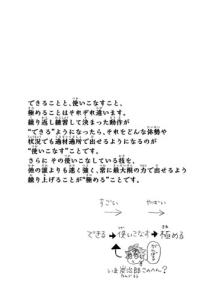 できることと、使いこなすこと、
極めることはそれぞれ違います。
繰り返し練習して決まった動作が
“できる”ようになったら、それをどんな体勢や
状況でも適材適所で出せるようになるのが
“使いこなす”ことです。
さらに その使いこなしている技を、
他の誰よりも速く強く、常に最大限の力で出せるよう
練り上げることが“極める”ことです。
すごい やばい
できる→使いこなす→極める
がんばる
いま炭治郎このへん?